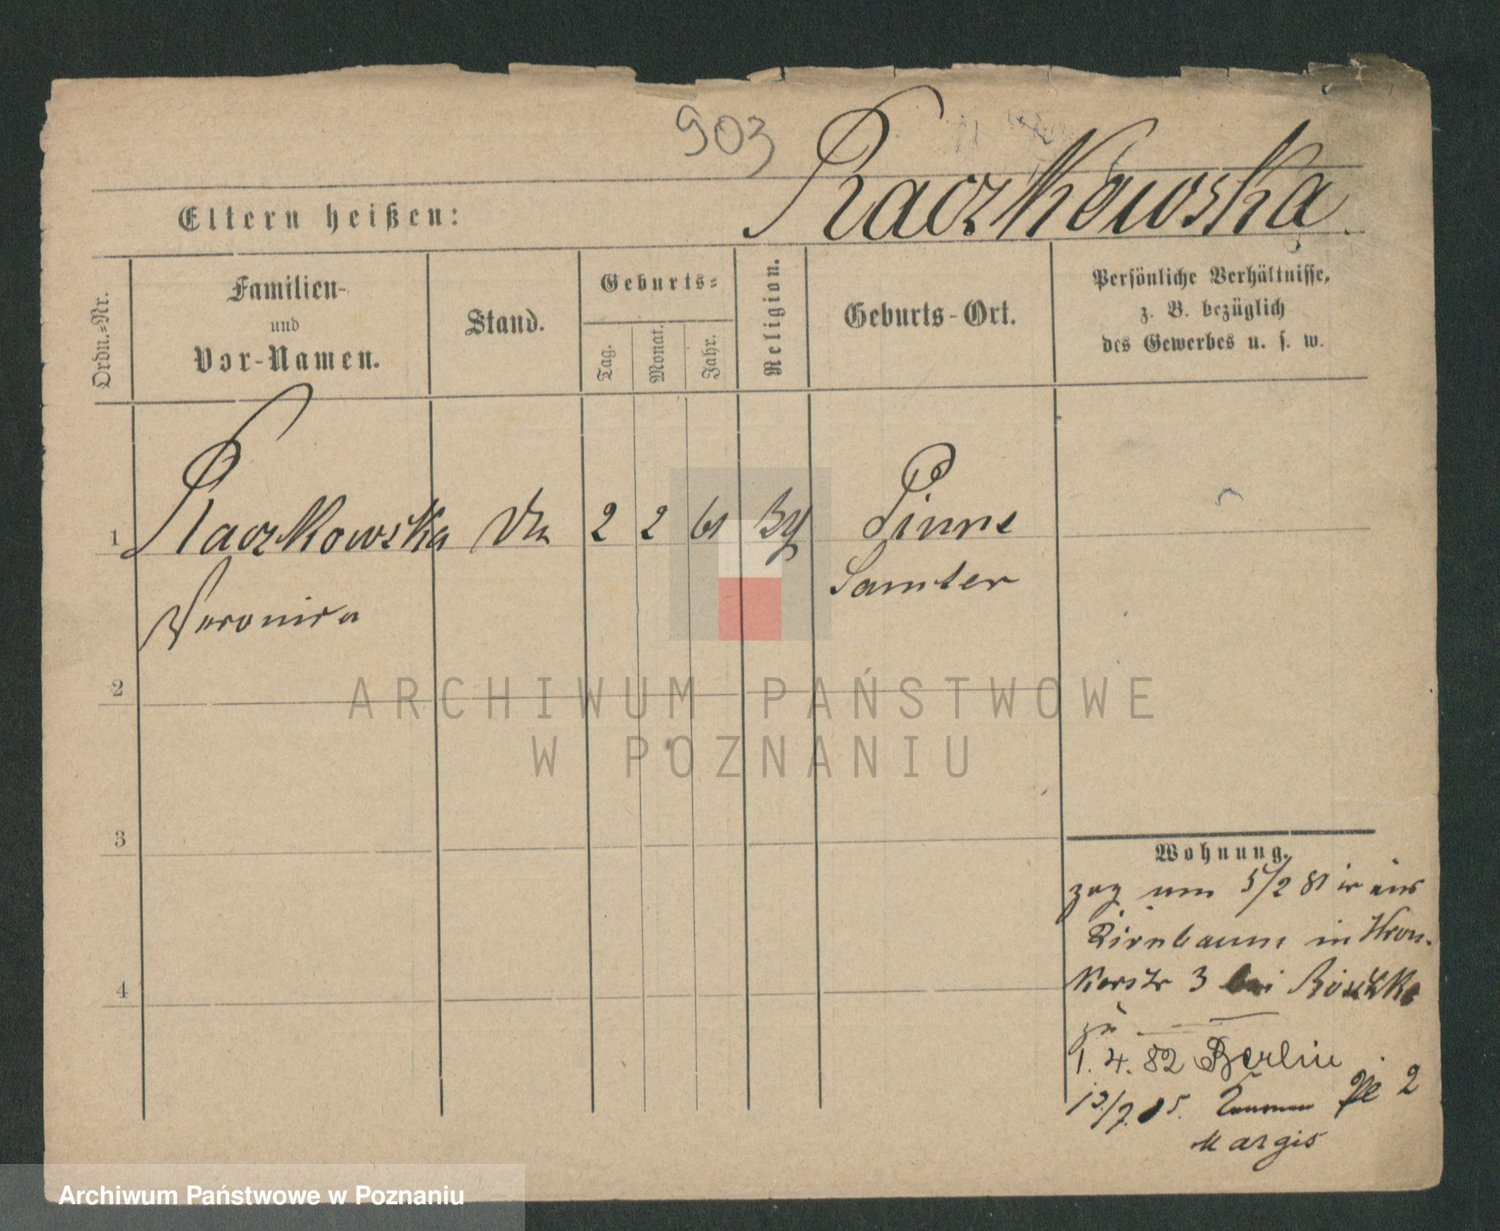 903
Raczkowska
Eltern heißen:
Ordn.-Nr.
Familien-
und
Vor-Namen.
Stand.
Geburts-
Tag.
Monat.
Jahr.
Religion.
Geburts-Ort.
Persönliche Verhältnisse,
z. B. bezüglich
des Gewerbes u. s. w.
1 Raczkowska 2 2 61 Pinne
Veronica Samter
2
ARCHIWUM PAŃSTWOWE
W POZNANIU
3
4
Wohnung.
zog am 5/2 81 aus
Birnbaum in Kron-
kerstr 3 bei
zu
1. 4. 82 Berlin
13/7. 85. 2
Margis
Archiwum Państwowe w Poznaniu